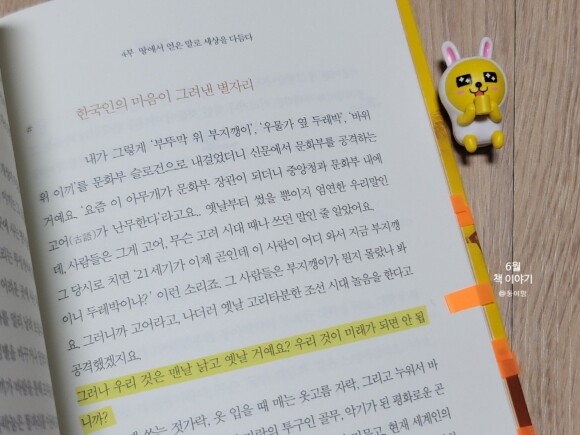 4부 땅에서 얻은 말로 세상을 다듬다
한국인의 마음이 그려낸 별자리
내가 그렇게 '부뚜막 위 부지깽이', '우물가 옆 두레박', '바위
위 이끼'를 문화부 슬로건으로 내걸었더니 신문에서 문화부를 공격하는
거예요. '요즘 이 아무개가 문화부 장관이 되더니 중앙청과 문화부 내에
고어(古語)가 난무한다'라고요. 옛날부터 썼을 뿐이지 엄연한 우리말인
데, 사람들은 그게 고어, 무슨 고려 시대 때나 쓰던 말인 줄 알았어요.
그 당시로 치면 '21세기가 이제 곧인데 이 사람이 어디 와서 지금 부지깽
이니 두레박이냐?' 이런 소리죠. 그 사람들은 부지깽이가 뭔지 몰랐나 봐
요. 그러니까 고어라고, 나더러 옛날 고리타분한 조선 시대 놀음을 한다고
공격했겠지요.
그러나 우리 것은 맨날 낡고 옛날 거예요? 우리 것이 미래가 되면 안 됩
니까?
쓰는 젓가락, 옷 입을 때 매는 옷고름 자락, 그리고 누워서 바
투구인 골무, 악기가 된 평화로운 곤
현재 세계인의
6월
책 이야기